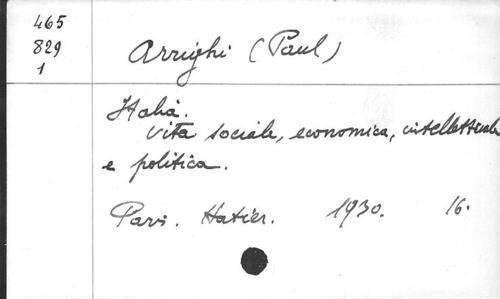 465
829
1
Arrighi (Paul)
Italia.
vita sociale, economica, intellettuale
e politica.
Pari. Hatier. 1930. 16.